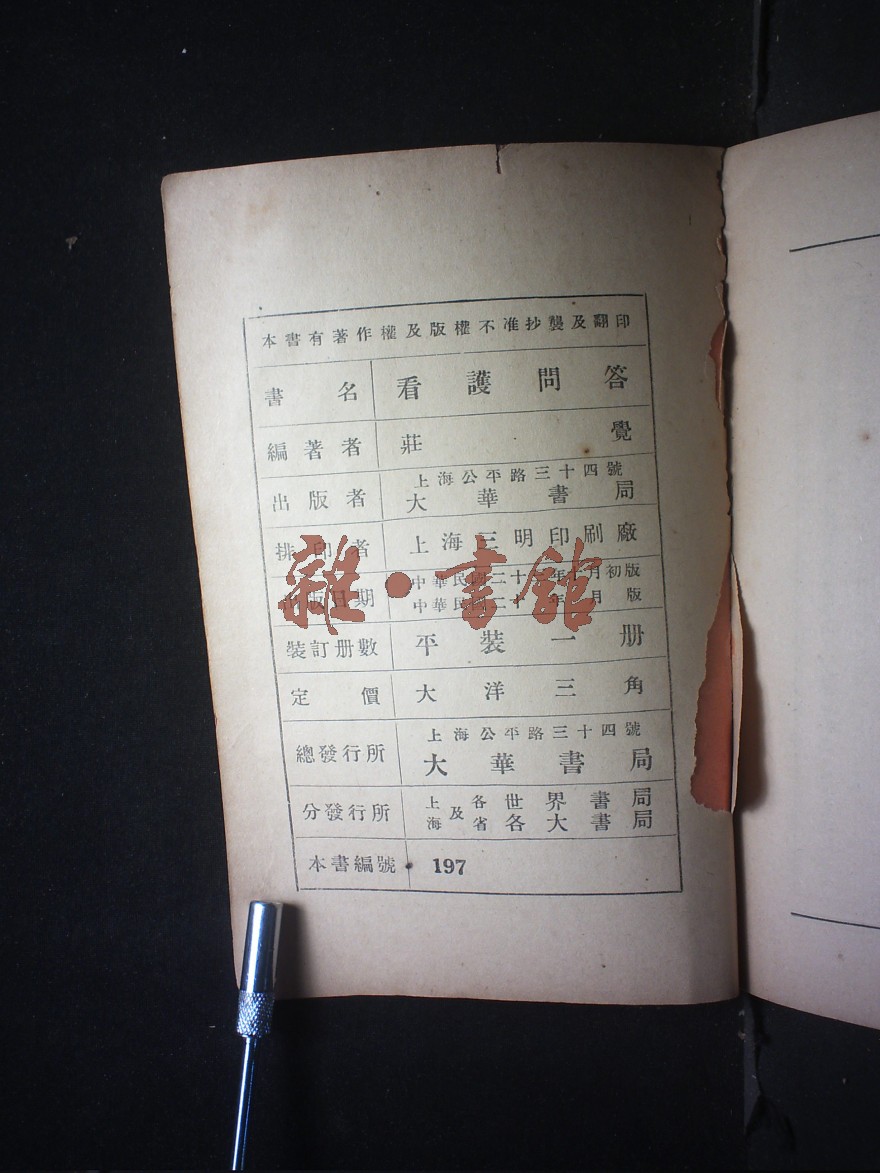 本書有著作權及版權不准抄襲及翻印
書名 看護問答
編著者 莊覺
出版者 上海公平路三十四號
大華書局
排印者 上海三明印刷廠
出版日期 中華民國二十年月初版
中華民國二十年月版
裝訂册數 平裝一册
定價 大洋三角
總發行所 上海公平路三十四號
大華書局
分發行所 上海及各省世界書局
各大書局
本書編號 197
雜·書館